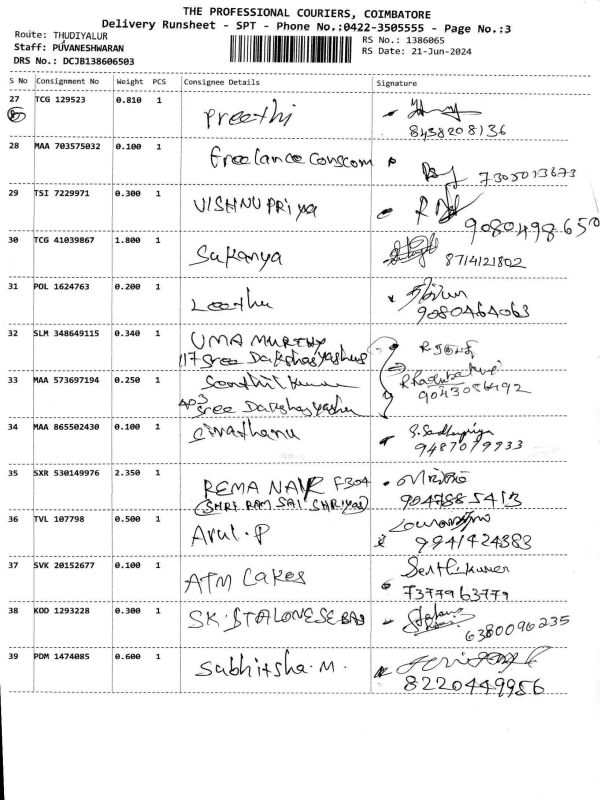 THE PROFESSIONAL COURIERS, COIMBATORE
Delivery Runsheet - SPT - Phone No.:0422-3505555 - Page No.:3
Route: THUDIYALUR
RS No.: 1386065
Staff: PUVANESHWARAN
RS Date: 21-Jun-2024
DRS No.: DCJB138606503
S No Consignment No Weight PCS Consignee Details Signature
27 TCG 129523 0.810 1 Preethi
8438208136
28 MAA 703575032 0.100 1 freelance Conscom
7305013673
29 TSI 7229971 0.300 1 VISHNU PRiya
9080498650
30 TCG 41039867 1.800 1 Sukanya
8714121802
31 POL 1624763 0.200 1 Leethu
9080464063
32 SLM 348649115 0.340 1 UMA MURTHY
117 Sree
33 MAA 573697194 0.250 1 Senthil kumar
9043056492
403 Sree
34 MAA 865502430 0.100 1 Sivathanu S.Sadhupriya
9487079933
35 SXR 530149976 2.350 1 REMA NAIR F304
(SHRI RAM SAI SHRIYAS)
9047585413
36 TVL 107798 0.500 1 Arul.P
9941424383
37 SVK 20152677 0.100 1 ATM Cakes Senthilkumar
7377963779
38 KOD 1293228 0.300 1 SK.STALONESEBAS
6380096235
39 PDM 1474085 0.600 1 Sabhitsha.M.
8220449956